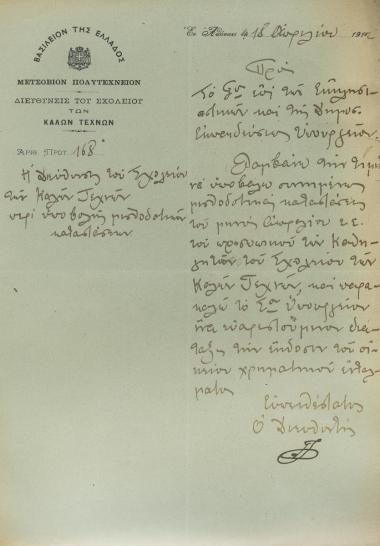 ΒΑΣΙΛΕΙΟΝ ΤΗΣ ΕΛΛΑΔΟΣ
ΜΕΤΣΟΒΙΟΝ ΠΟΛΥΤΕΧΝΕΙΟΝ
ΔΙΕΥΘΥΝΣΙΣ ΤΟΥ ΣΧΟΛΕΙΟΥ
ΤΩΝ
ΚΑΛΩΝ ΤΕΧΝΩΝ
ΑΡΙΘ. ΠΡΩΤ. 168
Ἡ Διεύθυνσις τοῦ Σχολείου
τῶν Καλῶν Τεχνῶν
περὶ ὑποβολῆς μισθοδοτικῶν
καταστάσεων
Ἐν Ἀθήναις τῇ 16 Ἀπριλίου 191
Πρὸς
Τὸ Σον ἐπὶ τῶν Ἐκκλησι-
αστικῶν καὶ τῆς Δημοσ.
Ἐκπαιδεύσεως Ὑπουργεῖον.
Λαμβάνω τὴν τιμὴν
νὰ ὑποβάλω συνημμένως
μισθοδοτικὰς καταστάσεις
τοῦ μηνὸς Ἀπριλίου ἐ.ἔ.
τοῦ προσωπικοῦ τῶν Καθη-
γητῶν τοῦ Σχολείου τῶν
Καλῶν Τεχνῶν, καὶ παρα-
καλῶ τὸ Σον Ὑπουργεῖον
ἵνα εὐαρεστούμενον δια-
τάξῃ τὴν ἔκδοσιν τοῦ οἰ-
κείου χρηματικοῦ ἐντάλ-
ματος
Εὐπειθέστατος
Ὁ Διευθυντής